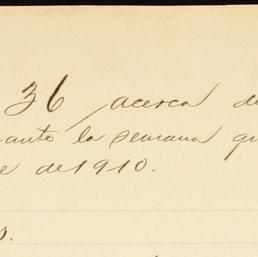 36 acerca de
ante la semana qu
e de 1910.
s.